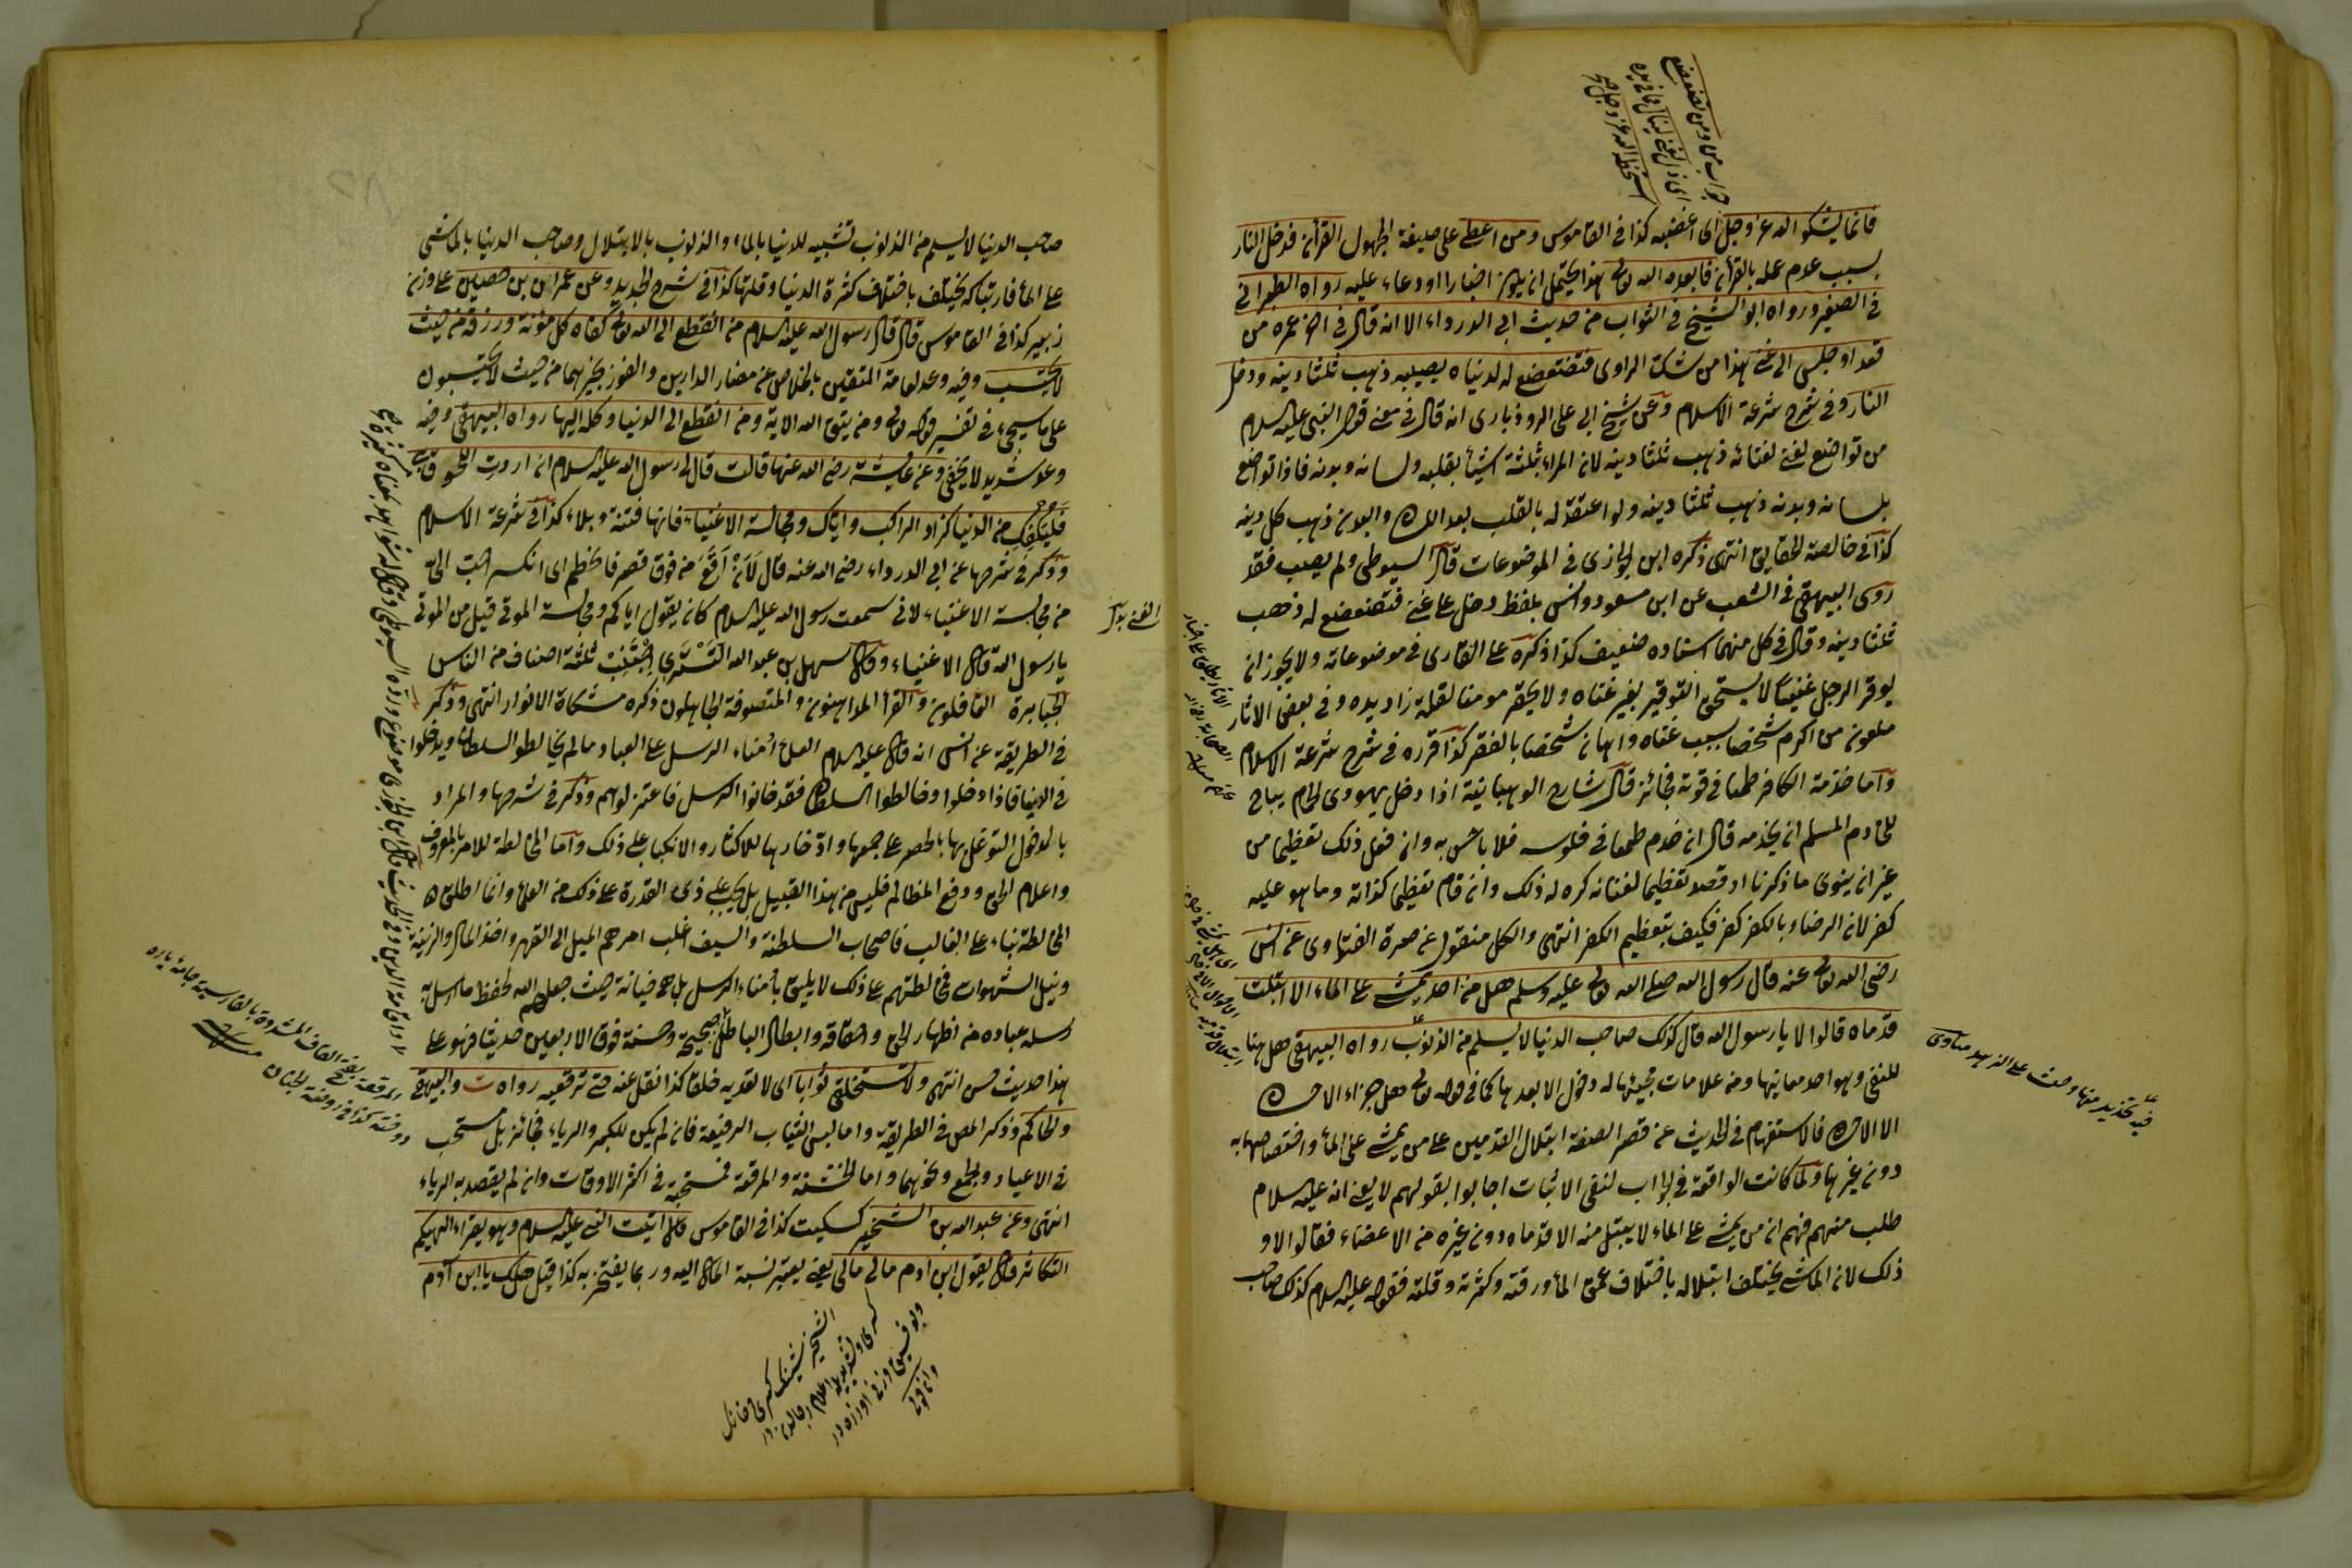 فانما يشكو الله عز وجل اى اغضبه كذا فى القاموس ومن اعطى على صيغة المجهول القرآن فدخل النار
بسبب عدم عمله بالقرآن فابعده الله تعالى هذا يحتمل ان يكون اخبارا او دعاء عليه رواه الطبرانى
فى الصغير ورواه ابو الشيخ فى الثواب من حديث ابى الدرداء الا انه قال فى اخره من
قعد او جلس الى غنى هذا من شك الراوى فتضعضع له لدنياه يصيبه ذهب ثلثا دينه ودخل
النار وفى شرح شرعة الاسلام وعن شيخ ابى على الروذبارى انه قال فى معنى قول النبى عليه السلام
من تواضع لغنى لغنائه ذهب ثلثا دينه لان المراء بثلثة اشيأ بقلبه ولسانه وبدنه فاذا تواضع
بلسانه وبدنه ذهب ثلثا دينه ولو اعتقد له بالقلب بعد اللسان والبدن ذهب كل دينه
كذا فى خالصة الحقايق انتهى ذكره ابن الجوزى فى الموضوعات قال السيوطى ولم يصب فقد
روى البيهقى فى الشعب عن ابن مسعود وانس بلفظ دخل على غنى فتضعضع له ذهب
ثلثا دينه وقال فى كل منهما اسناده ضعيف كذا ذكره على القارى فى موضوعاته ولا يجوز ان
يوقر الرجل غنيا لا يستحق التوقير بغير غناه ولا يحقر مؤمنا لقلة زاد يده وفى بعض الاثار
ملعون من اكرم شخصا بسبب غناه واهان شخصا بالفقر كذا قرره فى شرح شرعة الاسلام
واما خدمة الكافر طمعا فى قوته فجائز قال شارح الوهبانية اذا دخل يهودى الحمام يباح
للخادم المسلم ان يخدمه قال ان خدم طمعا فى فلوسه فلا باس به وان فعل ذلك تعظيما من
غير ان ينوى ما ذكرنا او قصد تعظيما لغنائه كره له ذلك وان قام تعظيما لذاته وما هو عليه
كفر لان الرضاء بالكفر كفر فكيف بتعظيم الكفر انتهى والكل منقول عن صرة الفتاوى عن انس
رضى الله تعالى عنه قال رسول الله صلى الله تعالى عليه وسلم هل من احد يمشى على الماء الا ابتلت
قدماه قالوا لا يا رسول الله قال كذلك صاحب الدنيا لا يسلم من الذنوب رواه البيهقى هل هنا
للنفى وهو احد معانيها ومن علامات مجيئها له دخول الا بعدها كما فى قوله تعالى هل جزاء الاحسان
الا الاحسان فالاستفهام فى الحديث عن قصر الصفة ابتلال القدمين على من يمشى على المأ واختصاصها به
دون غيرها ولما كانت الواقعة فى الجواب لنفى الاثبات اجابوا بقولهم لا يعنى انه عليه السلام
طلب منهم فهم ان من يمشى على الماء لا يبتل منه الا قدماه دون غيره من الاعضاء فقالوا لا و
ذلك لان الماشى يختلف ابتلاله باختلاف عمق المأ ورقته وكثرته وقلته فقوله عليه السلام كذلك صاحب
فيه تحذير منها وحث على الزهد مناوى
صاحب الدنيا لا يسلم من الذنوب تشبيه للدنيا بالماء والذنوب بالابتلال وصاحب الدنيا بالماشى
على المأ فارتباكه يختلف باختلاف كثرة الدنيا وقلتها كذا فى شرح الجديد وعن عمران بن حصين على وزن
زبير كذا فى القاموس قال قال رسول الله عليه السلام من انقطع الى الله تعالى كفاه كل مؤنة ورزقه من حيث
لا يحتسب وفيه وعد لعامة المتقين بالخلاص عن مضار الدارين والفوز بخيرهما من حيث لا يحتسبون
على ما سيجئ فى تفسير قوله تعالى ومن يتق الله الاية ومن انقطع الى الدنيا وكله اليها رواه البيهقى وفيه
وعد شديد لا يخفى وعن عايشة رضى الله عنها قالت قال لى رسول الله عليه السلام ان اردت اللحوق بى
فليكفك من الدنيا كزاد الراكب واياك ومجالسة الاغنياء فانها فتنة وبلاء كذا فى شرعة الاسلام
وذكر فى شرحها عن ابى الدرداء رضى الله عنه قال لان اقع من فوق قصر فانحطم اى انكسر احب الى
من مجالسة الاغنياء لانى سمعت رسول الله عليه السلام كان يقول اياكم ومجالسة الموتى قيل من الموتى
يا رسول الله قال الاغنياء وقال سهل بن عبد الله التسترى اجتنب ثلثة اصناف من الناس
الجبابرة الغافلون والقرأ المداهنون والمتصوفة الجاهلون ذكره مشكاة الانوار انتهى وذكر
فى الطريقة عن انس انه قال عليه السلام العلماء امناء الرسل على العباد ما لم يخالطوا السلطان ويدخلوا
فى الدنيا فاذا دخلوا وخالطوا السلطان فقد خانوا الرسل فاعتزلوهم وذكر فى شرحها والمراد
بالدخول التوغل بها بالحصر على جمعها وادخارها للاكثار والانكباب على ذلك واما المخالطة للامر بالمعروف
واعلام الحق ودفع المظالم فليس من هذا القبيل بل يجب على ذى القدرة على ذلك من العلماء وانما اطلق
المخالطة بناء على الغالب فاصحاب السلطنة والسيف اغلب امرهم الميل الى القهر واخذ المال والزينة
ونيل الشهوات فمخالطتهم على ذلك لا يليق بأمناء الرسل بل هى خيانة حيث جعلهم الله لحفظ ما ارسل به
رسله عباده من اظهار الحق واحقاقه وابطال الباطل صحيحة وحسنة فوق الاربعين حديثا فهو على
هذا حديث حسن انتهى ولا تستخلقى ثوبا اى لا تعديه خلقا كذا نقل عنه حتى ترقعيه رواه ت والبيهقى
والحاكم وذكر المص فى الطريقة واما لبس الثياب الرفيعة فان لم يكن للكبر والرياء فجائز بل مستحب
فى الاعياد والجمع ونحوهما واما الخشنة والمرقعة فمستحبة فى اكثر الاوقات وان لم يقصد به الرياء
انتهى وعن عبد الله بن الشخير كسكيت كذا فى القاموس قال اتيت النبى عليه السلام وهو يقرأ الهيكم
التكاثر قال يقول ابن ادم مالى مالى يعنى يعتبر نسبة المال اليه وربما يفتخر به كذا قيل هل لك يا ابن آدم